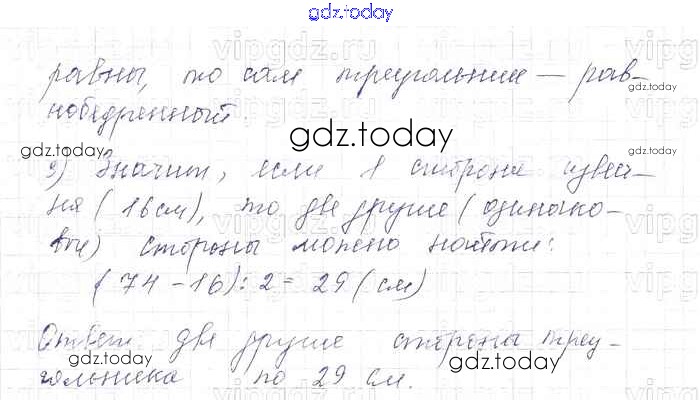 gdz.today
равны, то сам треугольник — рав-
нобедренный.
gdz.today
gdz.today
3) Значит, если 1 сторона извест-
на (16 см), то две другие (одинако-
вые) стороны можно найти:
(74 - 16) : 2 = 29 (см)
Ответ: две другие стороны треу-
gdz.today
gdz.today
гольника по 29 см.